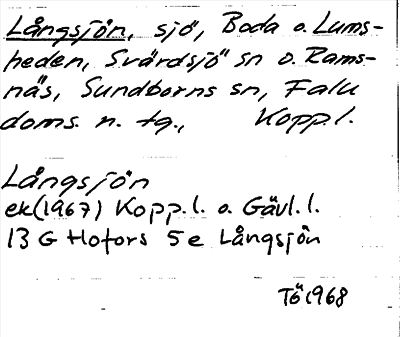 Långsjön, sjö, Boda o. Lums-
heden, Svärdsjö sn o. Rams-
näs, Sundborns sn, Falu
doms. n. tg., Kopp.l.
Långsjön
ek(1967) Kopp.l. o. Gävl.l.
13 G Hofors 5 e Långsjön
Tö 1968